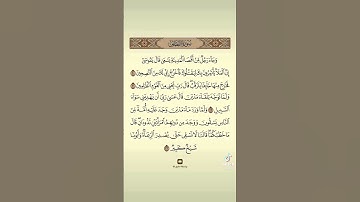 سورة القصص
وَجَاءَ رَجُلٌ مِّنْ أَقْصَا الْمَدِينَةِ يَسْعَىٰ قَالَ يَا مُوسَىٰ
إِنَّ الْمَلَأَ يَأْتَمِرُونَ بِكَ لِيَقْتُلُوكَ فَاخْرُجْ إِنِّي لَكَ مِنَ النَّاصِحِينَ
فَخَرَجَ مِنْهَا خَائِفًا يَتَرَقَّبُ قَالَ رَبِّ نَجِّنِي مِنَ الْقَوْمِ الظَّالِمِينَ
وَلَمَّا تَوَجَّهَ تِلْقَاءَ مَدْيَنَ قَالَ عَسَىٰ رَبِّي أَن يَهْدِيَنِي سَوَاءَ
السَّبِيلِ وَلَمَّا وَرَدَ مَاءَ مَدْيَنَ وَجَدَ عَلَيْهِ أُمَّةً مِّنَ
النَّاسِ يَسْقُونَ وَوَجَدَ مِن دُونِهِمُ امْرَأَتَيْنِ تَذُودَانِ قَالَ
مَا خَطْبُكُمَا قَالَتَا لَا نَسْقِي حَتَّىٰ يُصْدِرَ الرِّعَاءُ وَأَبُونَا
شَيْخٌ كَبِيرٌ